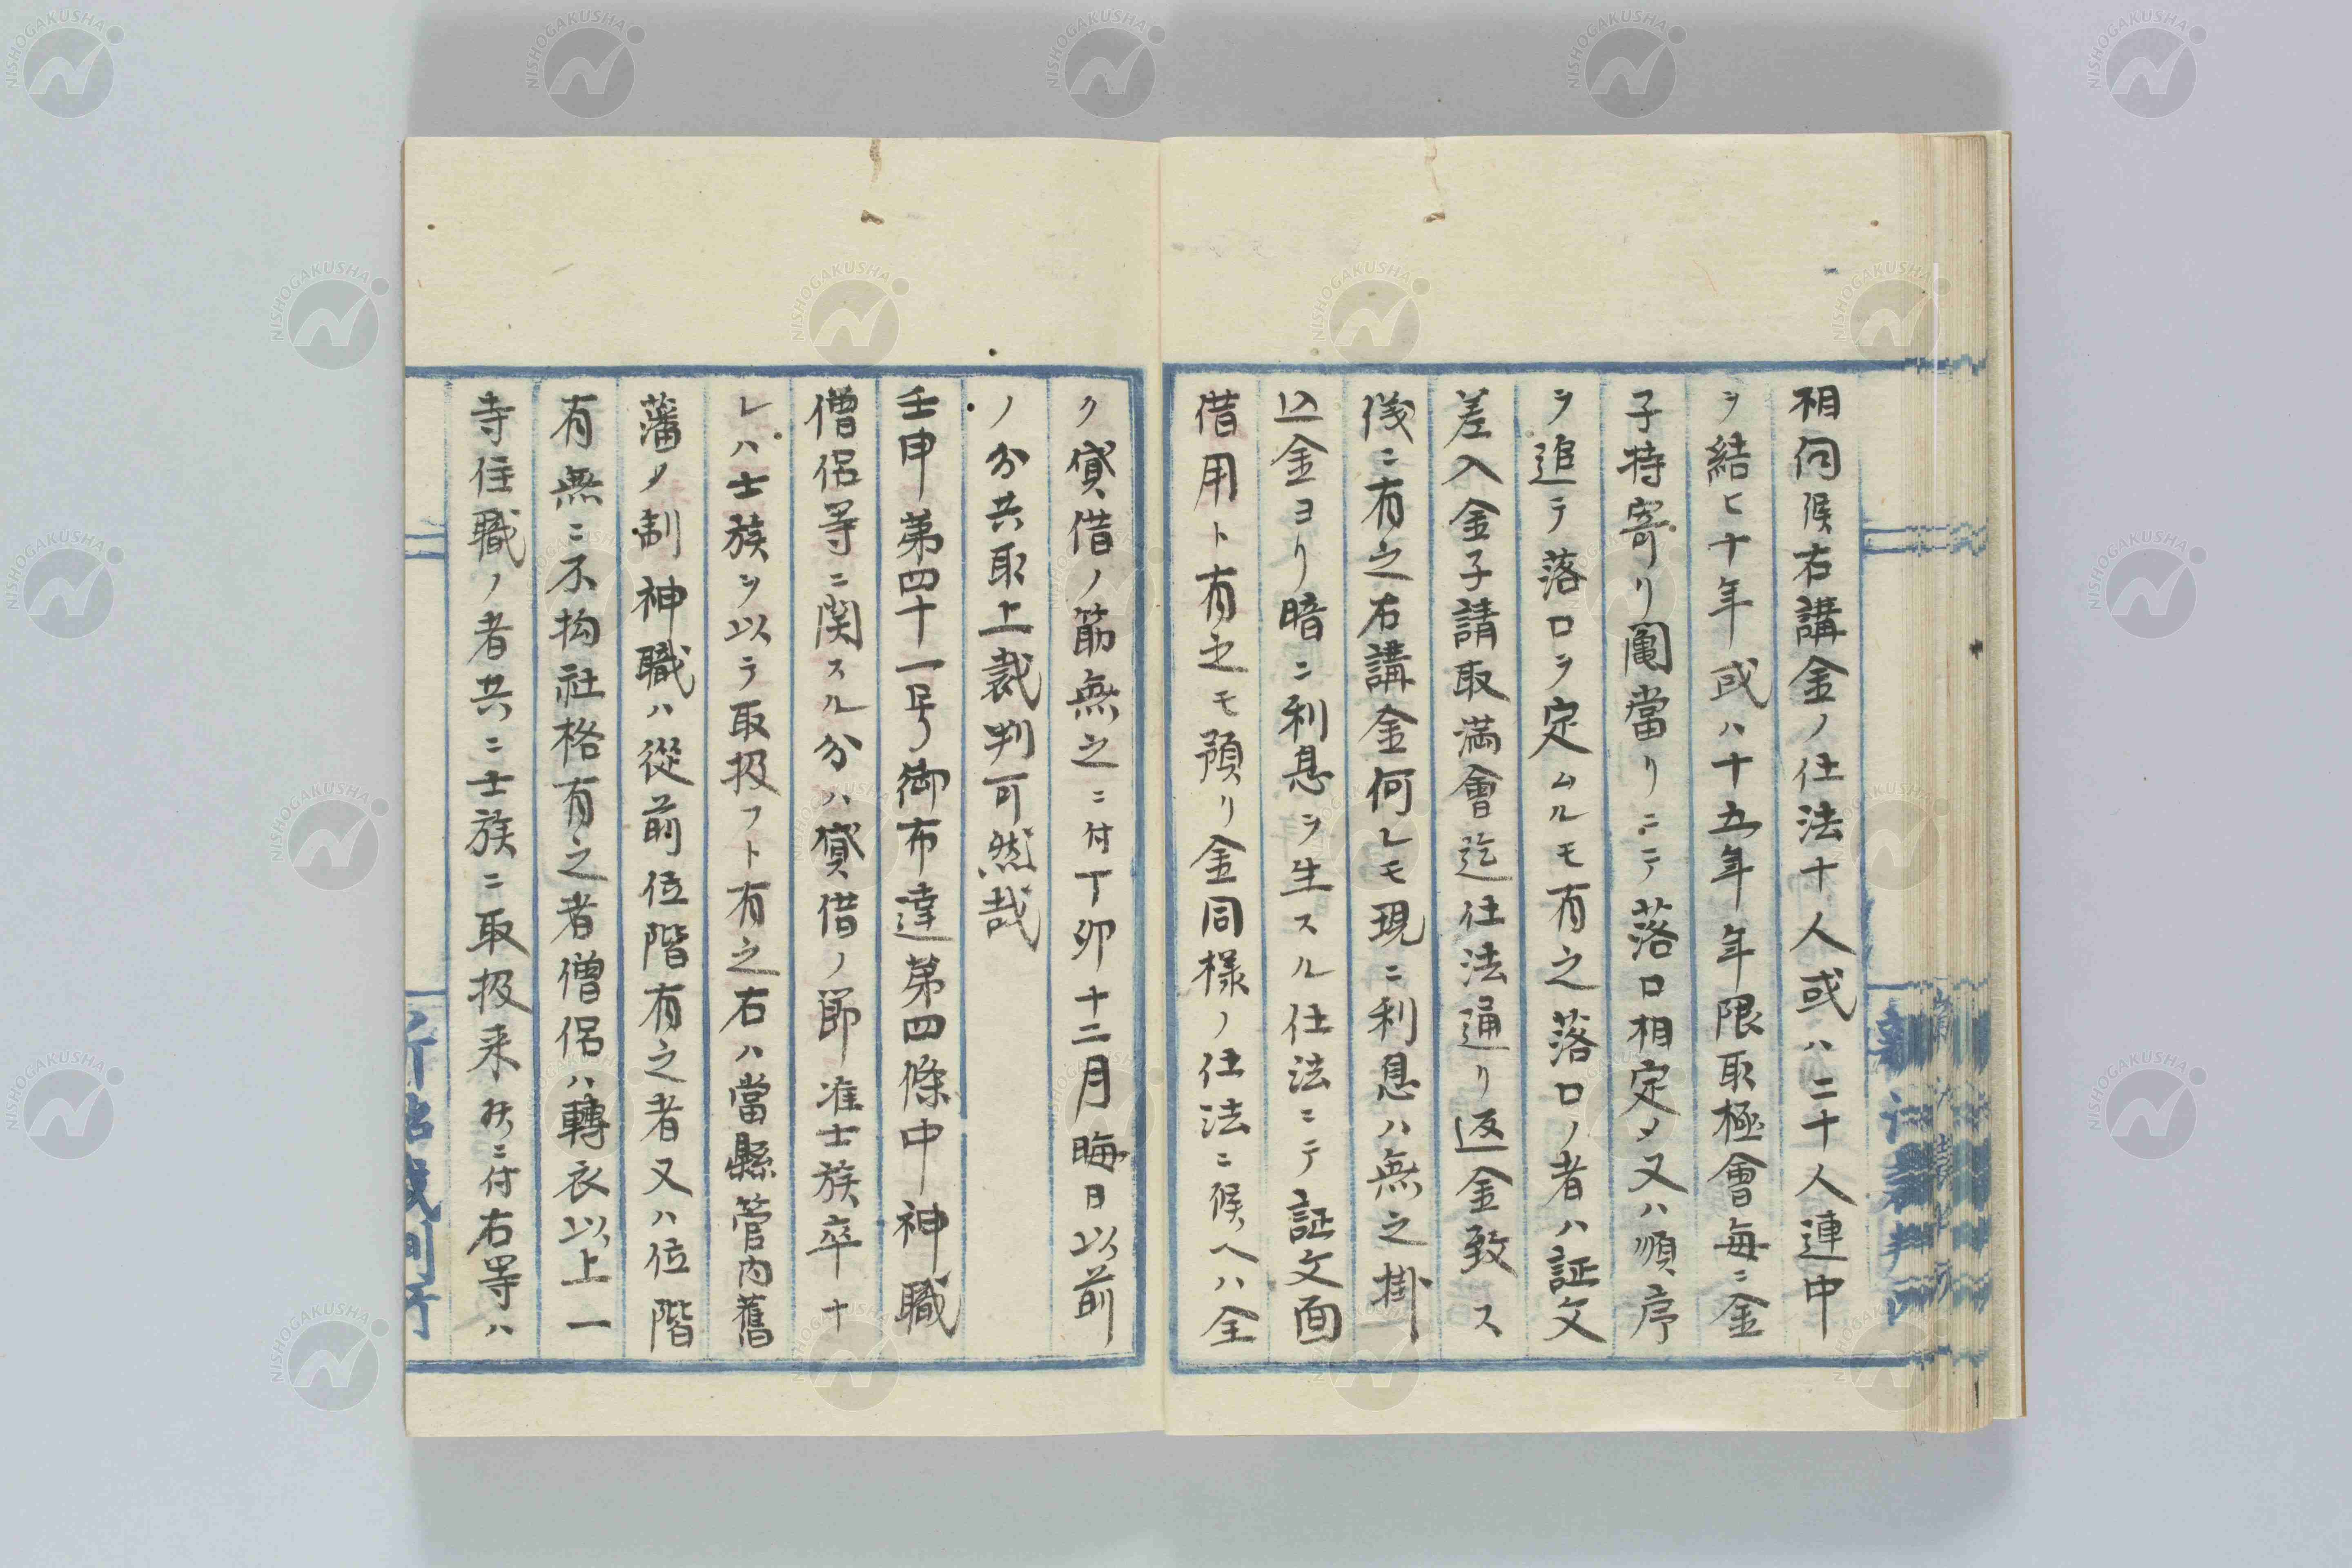 相伺候右講金ノ仕法十人或ハ二十人連中
ヲ結ヒ十年或ハ十五年年限取極會每ニ金
子持寄リ鬮當リニテ落口相定メ又ハ順序
ヲ追テ落口ヲ定ムルモ有之落口ノ者ハ証文
差入金子請取満會迄仕法通リ返金致ス
儀ニ有之右講金何レモ現ニ利息ハ無之掛
込金ヨリ暗ニ利息ヲ生スル仕法ニテ証文面
借用ト有之モ預リ金同様ノ仕法ニ候ヘハ全
ク貸借ノ筋無之ニ付丁卯十二月晦日以前
ノ分共取上裁判可然哉
壬申第四十一号御布達第四條中神職
僧侶等ニ関スル分ハ貸借ノ節准士族卒ナ
レハ士族ヲ以テ取扱フト有之右ハ當縣管内舊
藩ノ制神職ハ從前位階有之者又ハ位階
有無ニ不拘社格有之者僧侶ハ轉衣以上一
寺住職ノ者共ニ士族ニ取扱来候ニ付右等ハ
NISHOGAKUSHA